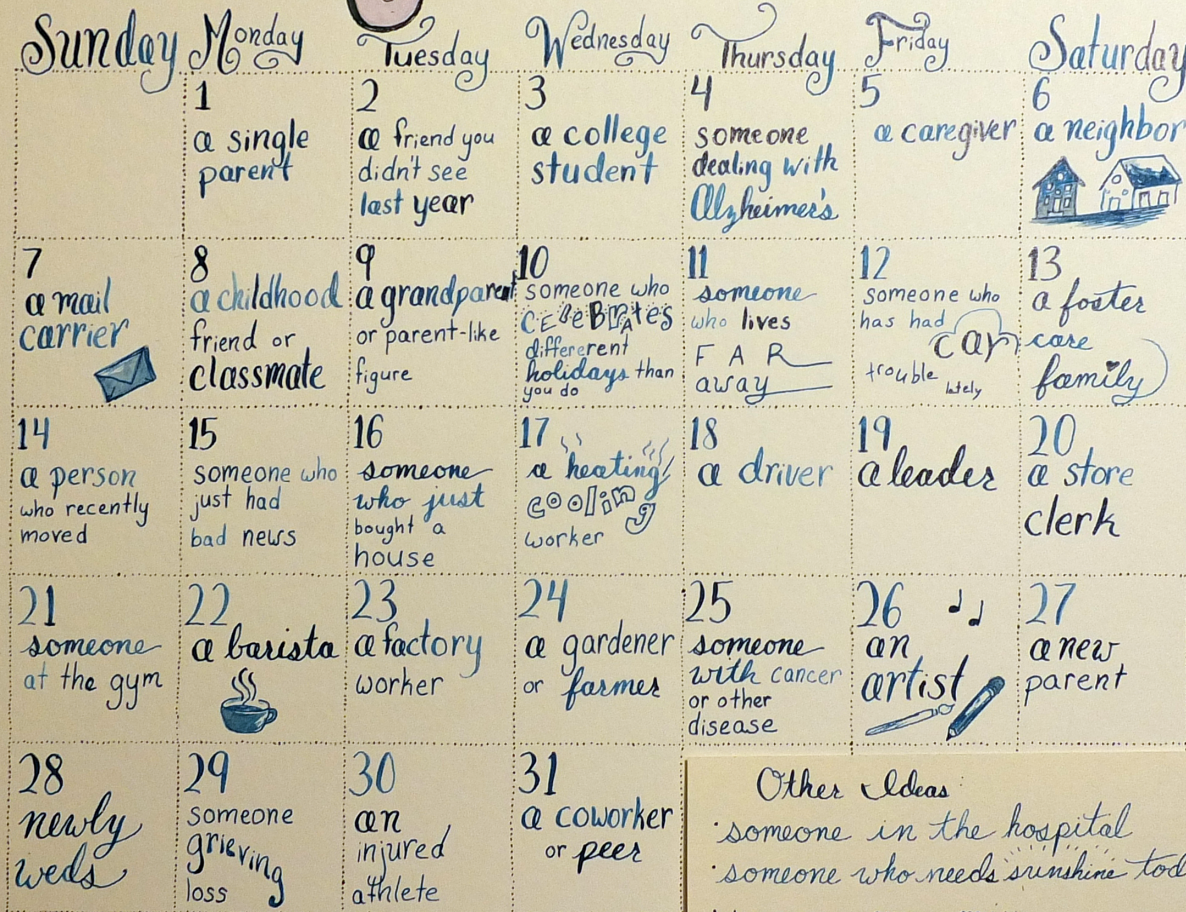 Sunday Monday Tuesday Wednesday Thursday Friday Saturday
1
a single
parent
2
a friend you
didn't see
last year
3
a college
student
4
someone
dealing with
Alzheimer's
5
a caregiver
6
a neighbor
7
a mail
carrier
8
a childhood
friend or
classmate
9
a grandparent
or parent-like
figure
10
someone who
CELEBRATES
differerent
holidays than
you do
11
someone
who lives
FAR
away
12
someone who
has had
car
trouble
lately
13
a foster
care
family
14
a person
who recently
moved
15
someone who
just had
bad news
16
someone
who just
bought a
house
17
a heating/
cooling
worker
18
a driver
19
a leader
20
a store
clerk
21
someone
at the gym
22
a barista
23
a factory
worker
24
a gardener
or farmer
25
someone
with cancer
or other
disease
26
an
artist
27
a new
parent
28
newly
weds
29
someone
grieving
loss
30
an
injured
athlete
31
a coworker
or peer
Other Ideas:
· someone in the hospital
· someone who needs sunshine tod